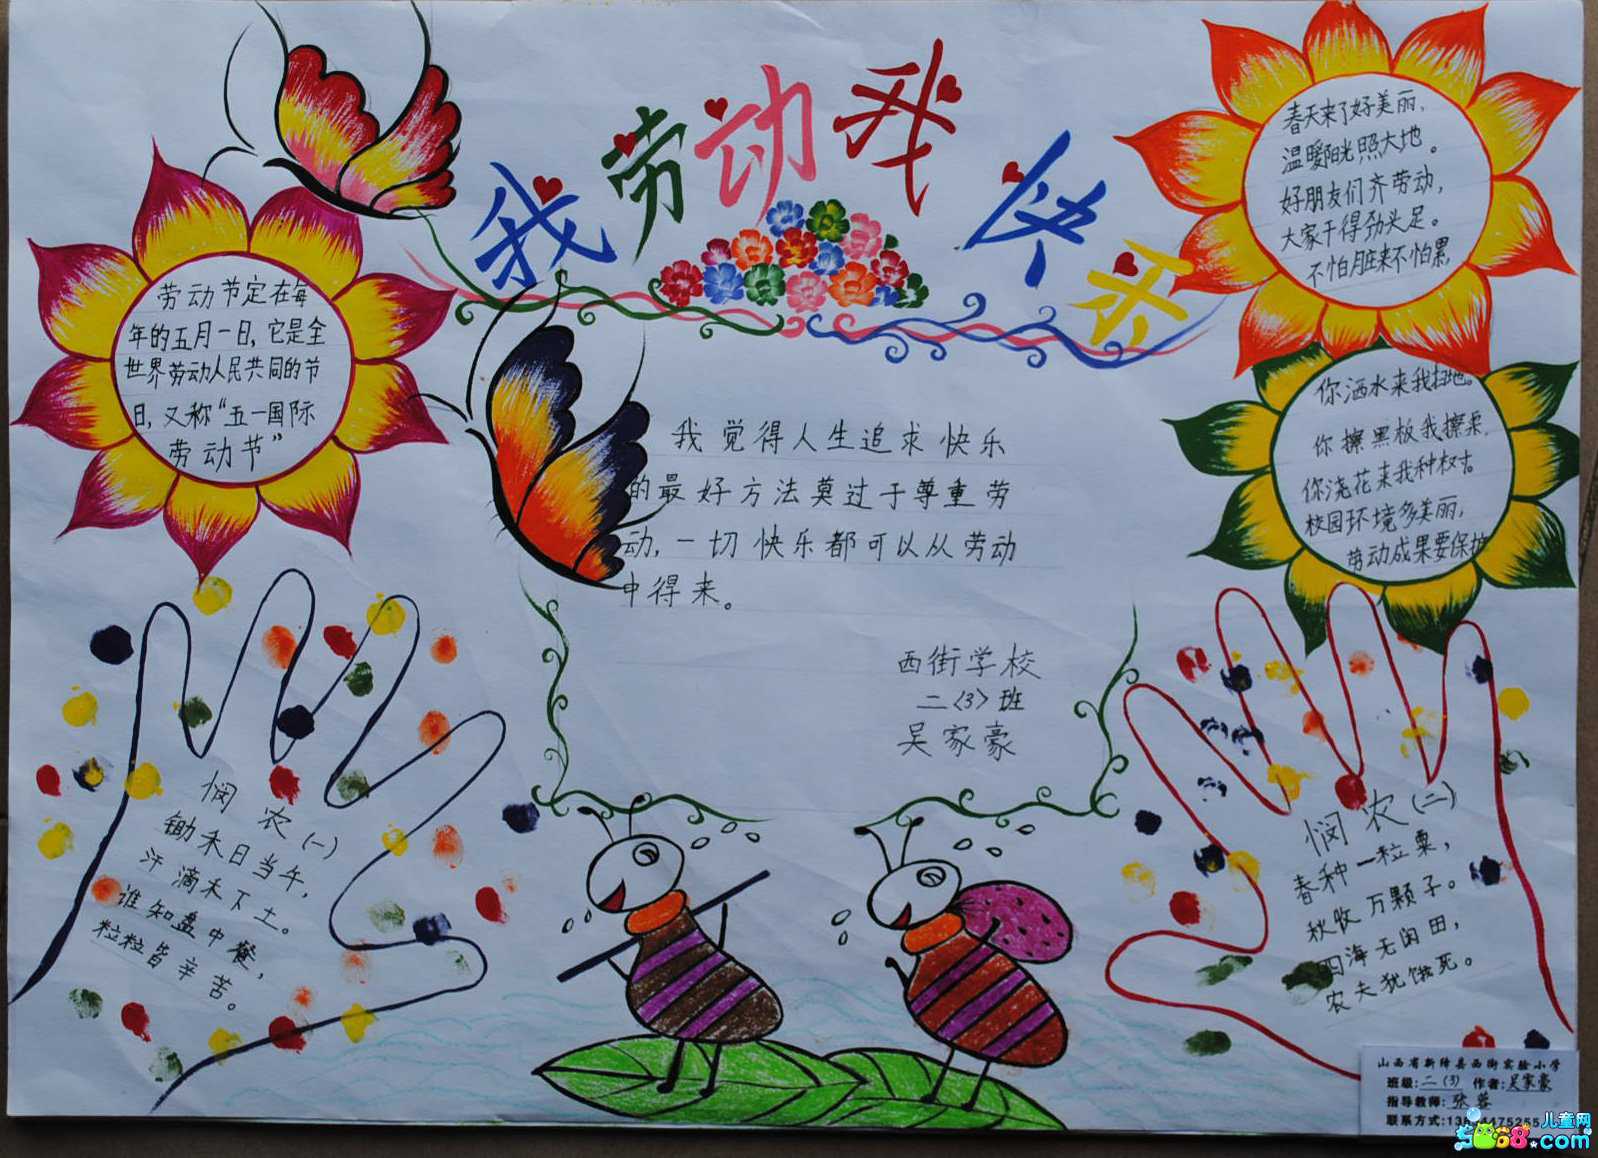 我劳动我快乐
劳动节定在每
年的五月一日,它是全
世界劳动人民共同的节
日,又称“五一国际
劳动节”
春天来了好美丽,
温暖阳光照大地。
好朋友们齐劳动,
大家干得劲头足。
不怕脏来不怕累,
你洒水来我扫地。
你擦黑板我擦桌,
你浇花来我种
校园环境多美丽,
劳动成果要保护
我觉得人生追求快乐
的最好方法莫过于尊重劳
动,一切快乐都可以从劳动
中得来。
西街学校
二〈3〉班
吴家豪
悯农(一)
锄禾日当午,
汗滴禾下土。
谁知盘中餐,
粒粒皆辛苦。
悯农(二)
春种一粒粟,
秋收万颗子。
四海无闲田,
农夫犹饿死。
山西省新绛县西街实验小学
班级:二(3) 作者:吴家豪
指导教师:张蓉
联系方式:
儿童网
5068.com